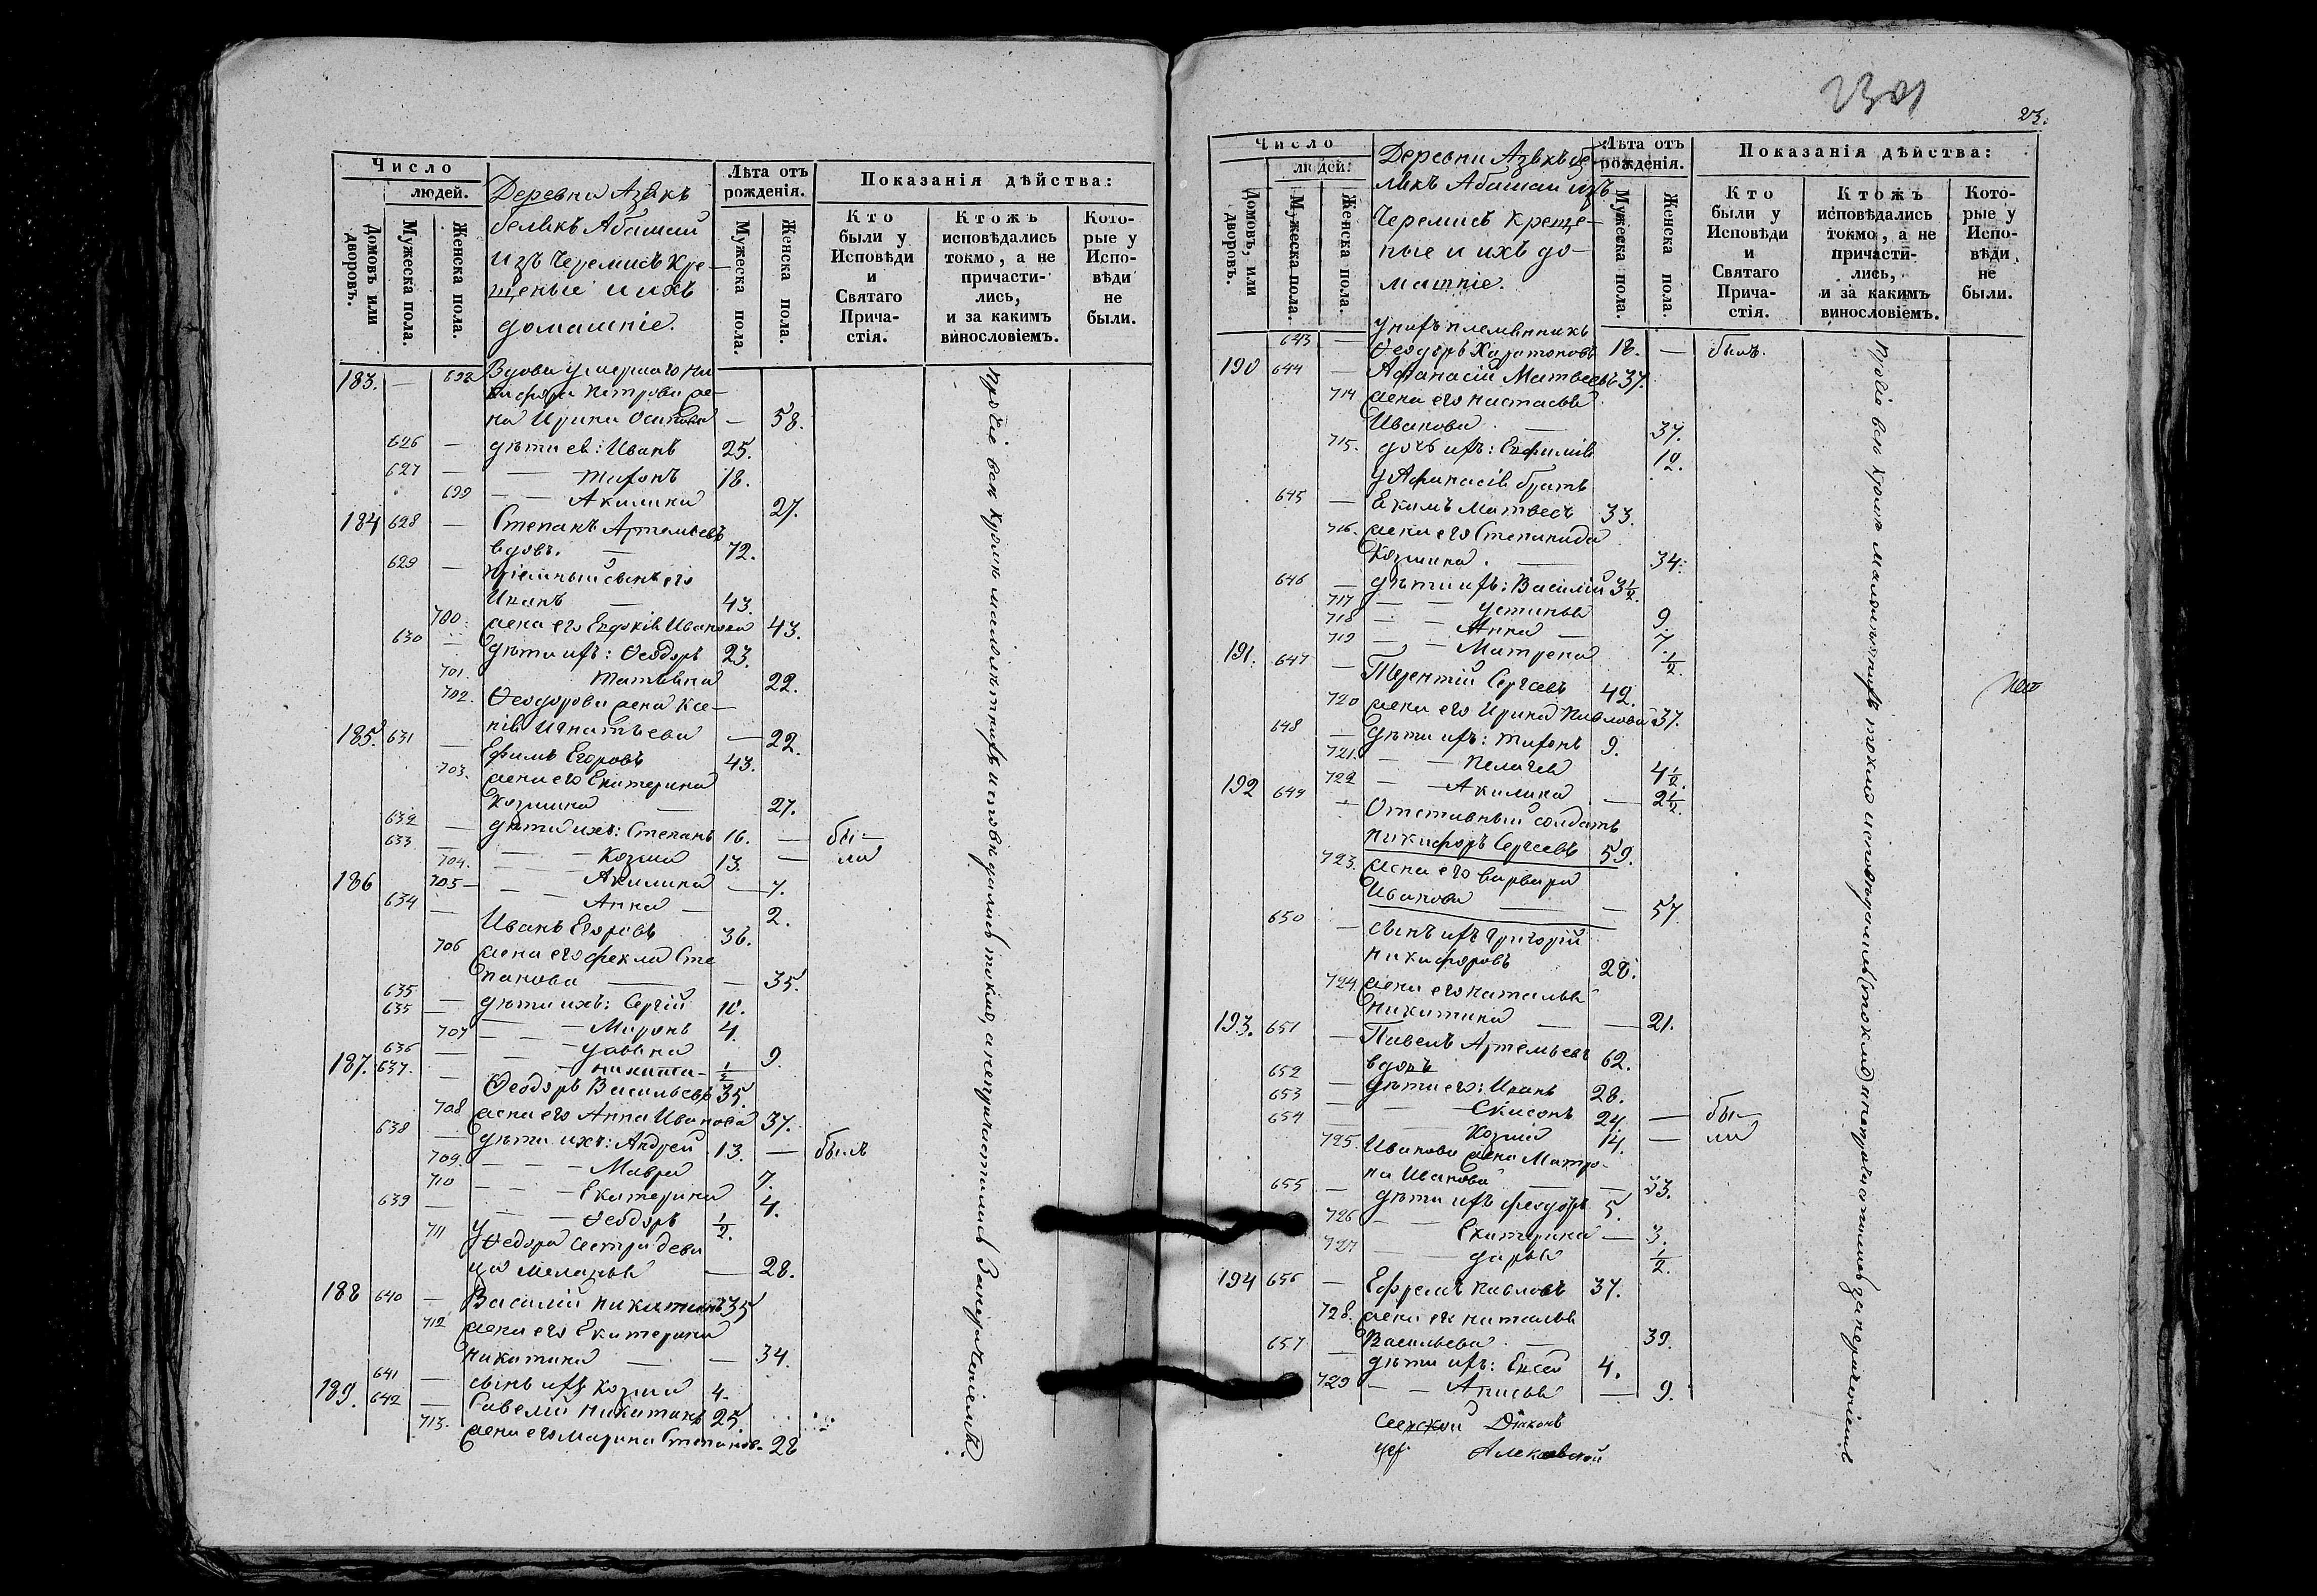 Число
людей.
Домовъ или дворовъ.
Мужеска пола.
Женска пола.
Деревни Азякъ
белякъ Абашай
изъ Черемисъ кре-
щеные и ихъ
домашніе.
Лѣта отъ рожденія.
Мужеска пола.
Женска пола.
Показанія дѣйства:
Кто были у Исповѣди и Святаго Прича-стія.
Ктожъ исповѣдались токмо, а не причасти-лись, и за какимъ винословіемъ.
Кото-рые у Испо-вѣди не были.
183. — 698 Вдова умершаго Ни
кифора Петрова же-
на Ирина Осипова — 58.
626 — дѣти ея: Иванъ 25.
627 — — Тихонъ 18.
699 — — Акилина 27.
184 628 — Степанъ Артемьевъ
вдовъ. — 72.
629 — пріемный сынъ его
Иванъ — 43.
700. жена его Евдокія Иванова 43.
630 — дѣти ихъ: Ѳеодоръ 23.
701. Татьяна 22.
702. Ѳеодорова жена Ксе-
нія Игнатьева — 22.
185. 631 — Ефимъ Егоровъ 43.
703. жена его Екатерина
Козмина — 27.
632 — дѣти ихъ: Степанъ 16. — бы-
633 — — — Козма 13. — ли
704. — — Акилина — 7.
186 705 — — — Анна — 2.
634 — Иванъ Егоровъ 36.
706 жена его Фекла Сте
панова — — 35.
635 — дѣти ихъ: Сергій 10.
635 — — — Миронъ 4.
707 — — — Устина 9.
636 — — — Никита — ½
187. 637. — Ѳеодоръ Васильевъ 35.
708 жена его Анна Иванова 37.
638 — дѣти ихъ: Андрей 13. — былъ
709. — — — Мавра 7.
710 — — — Екатерина 4.
639 — — — Ѳеодоръ ½.
711 у Ѳедора сестра деви
ца Меланья — 28.
188 640 — Василій Никитинъ 35
712 жена его Екатерина
Никитина — — 34.
641 — сынъ ихъ Козма 4.
189. 642 — Савелій Никитинъ 25.
713. жена его Марина Степанов. 28
Прочіе всѣ кромѣ малолѣтнихъ исповѣдались токмо, а непричастились за нераченіемъ.
2301
23.
Число
людей:
Домовъ, или дворовъ.
Мужеска пола.
Женска пола.
Деревни Азякъ бе-
лякъ Абашай изъ
Черемисъ креще-
ные и ихъ до-
машніе.
Лѣта отъ рожденія.
Мужеска пола.
Женска пола.
Показанія дѣйства:
Кто были у Исповѣди и Святаго Прича-стія.
Ктожъ исповѣдались токмо, а не причасти-лись, и за какимъ винословіемъ.
Кото-рые у Испо-вѣди не были.
У нихъ племянникъ
643 — Ѳеодоръ Харитоновъ 18. — былъ.
190 644 — Афанасій Матвеевъ 37.
714 жена его Настасья
Иванова — 37.
715. дочь ихъ: Евфимія 12.
у Афанасія братъ
645 — Екимъ Матвеев 33.
716. жена его Степанида
Козмина. — 34.
646 — дѣти ихъ: Василій 3½.
717 — — Устинья 9.
718 — — Анна — 7.
719 — — Матрена ½
191. 647 — Терентій Сергеевъ 42.
720 жена его Ирина Павлова 37.
648 — дѣти ихъ: Тихонъ 9.
721. — — Пелагея 4½.
722 — — Акилина — 2½.
192 649 — Отставный солдатъ
Никифоръ Сергеевъ 59.
723. жена его Варвара
Иванова — — 57.
650 — сынъ ихъ Григорій
Никифоровъ 28.
724. жена его Наталья
Никитина — — 21.
193. 651 — Павелъ Артемьевъ
вдовъ 62.
652 — дѣти его: Иванъ 28.
653 — — — 24. — бы-
654 — — Козма 14. — ли
725. Иванова жена Матро-
на Иванова — — 33.
655 — дѣти ихъ Феодоръ 5.
726 — — Екатерина — 3.
727 — — Дарья ½.
194 656 — Ефремъ Павловъ 37.
728. жена его Наталья
Васильева. — 39.
657 — дѣти ихъ: 4.
729 — — Анисья — 9.
Прочіе всѣ кромѣ малолѣтнихъ токмо исповѣдались токмо а непричастились за нераченіемъ
Діаконъ